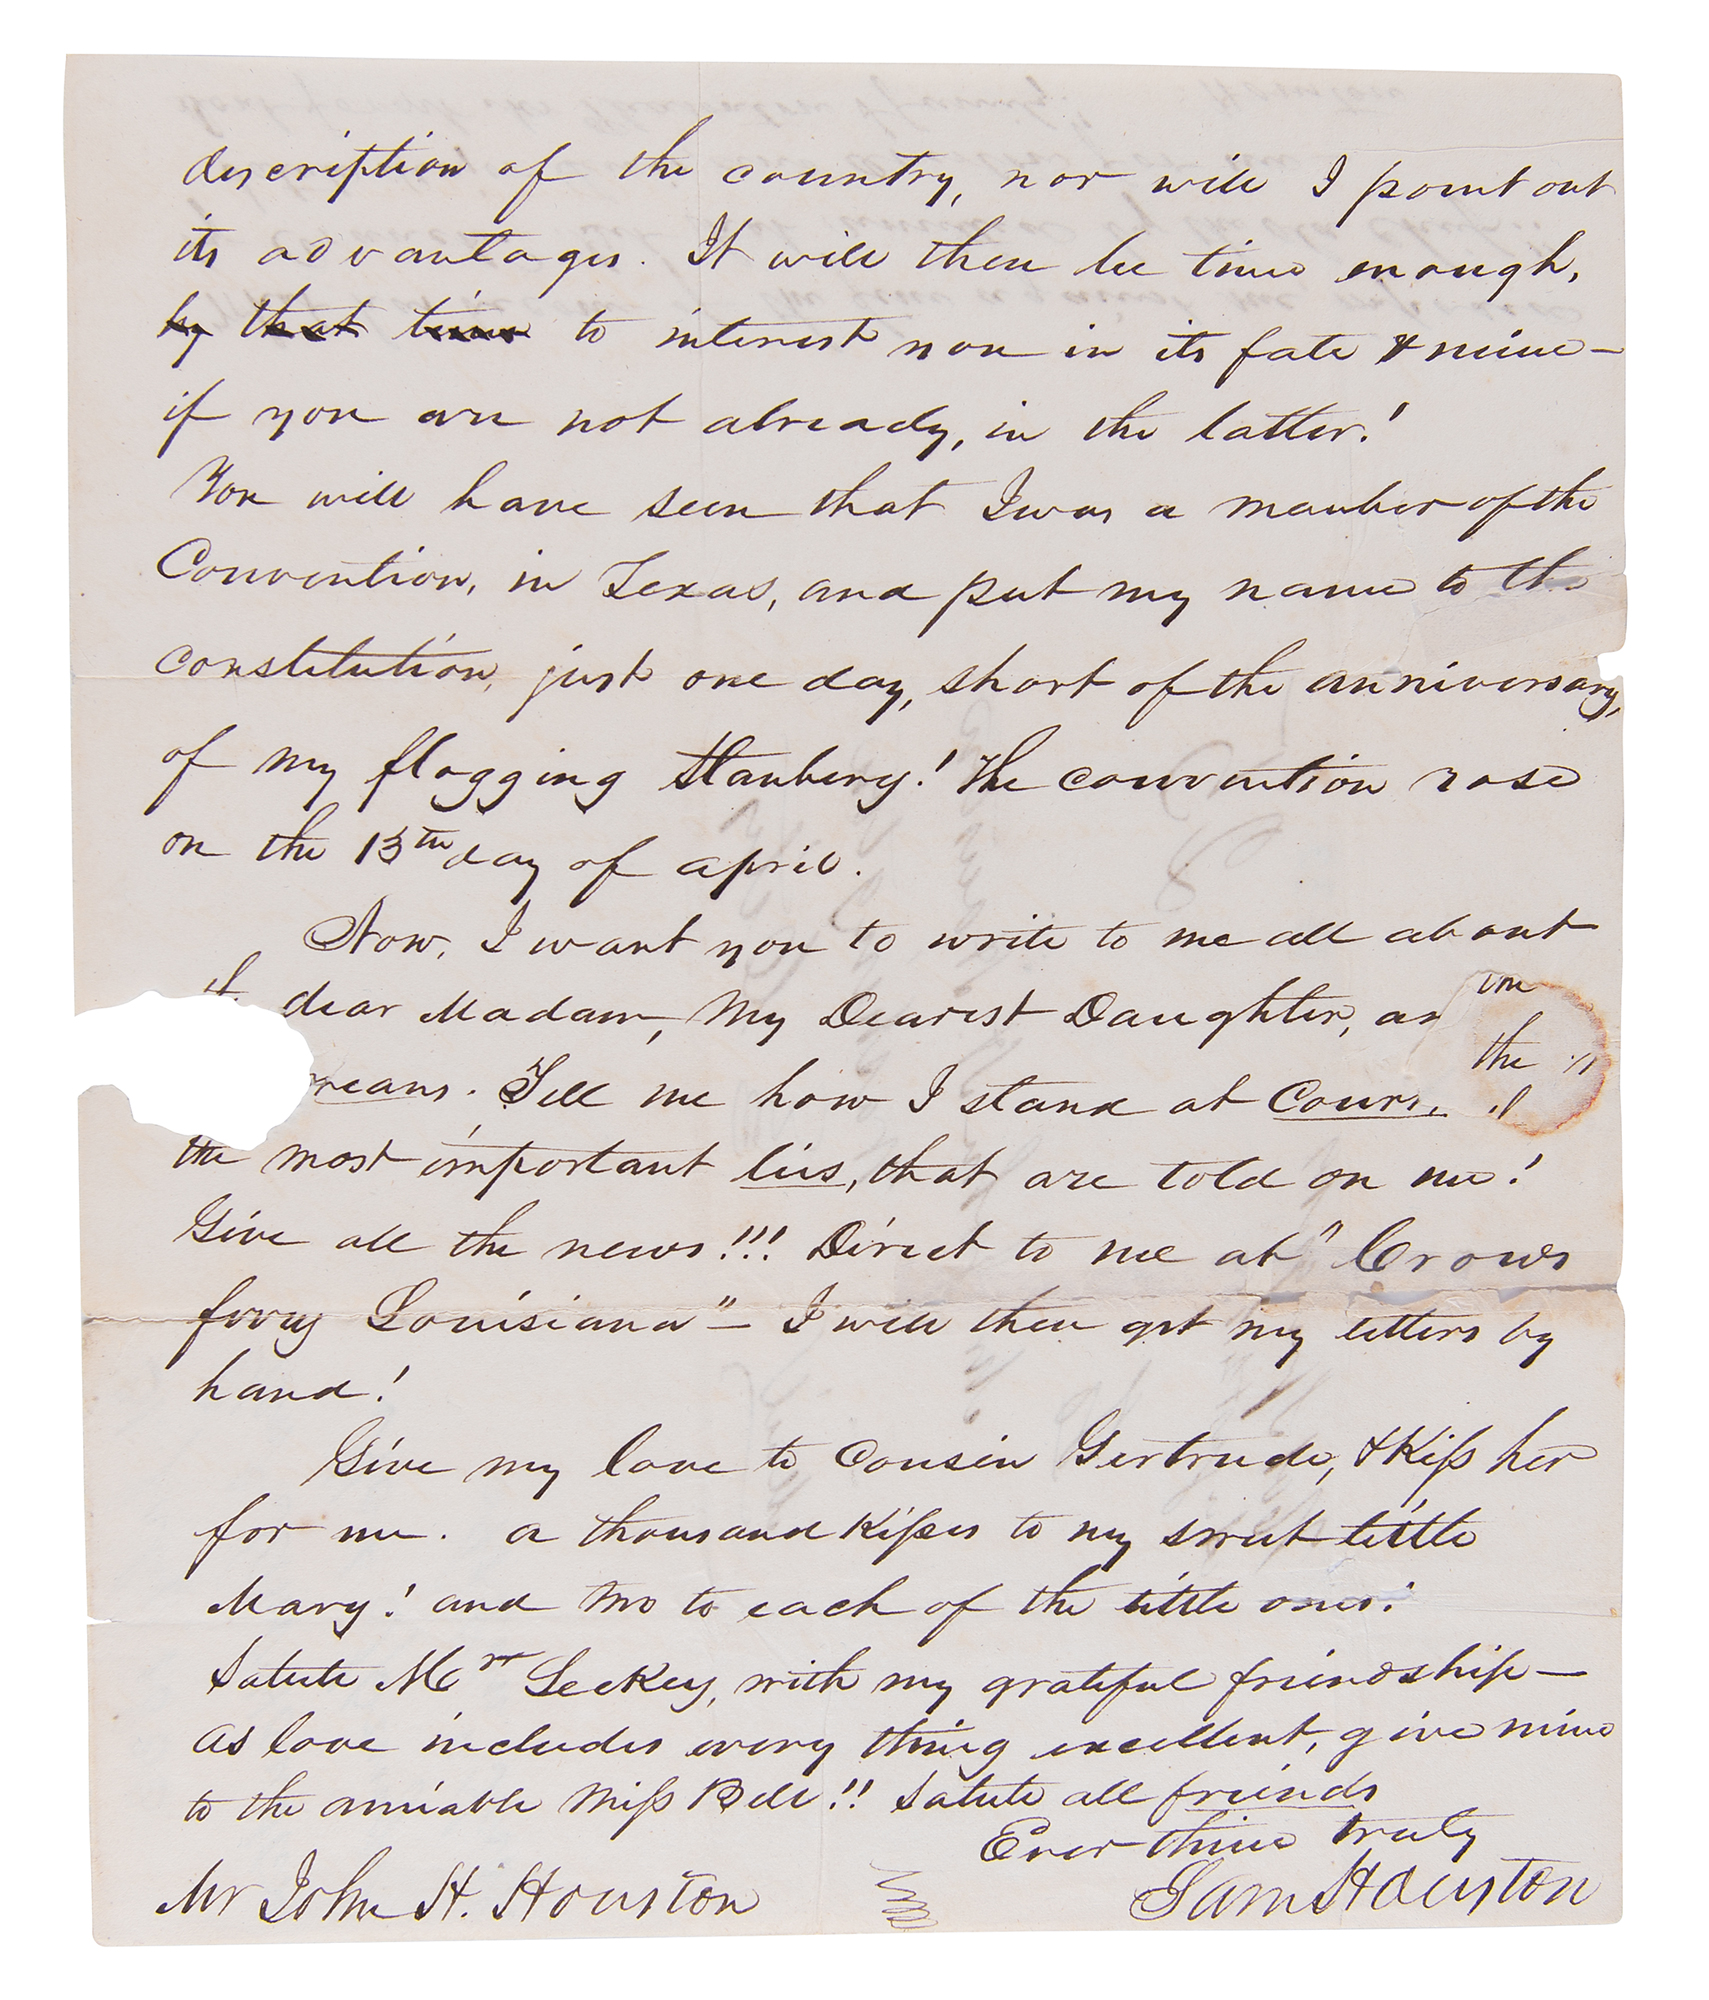 description of the country, nor will I point out
its advantages. It will then be time enough,
by that time to interest you in its fate & mine —
if you are not already, in the latter!
You will have seen that I was a member of the
Convention, in Texas, and put my name to the
constitution, just one day, short of the anniversary,
of my flogging Stanbery! The convention rose
on the 13th day of april.
Now, I want you to write to me all about
dear Madam, My Dearest Daughter, an
reans. Tell me how I stand at Cour
the
the most important lies, that are told on me!
Give all the news!!! Direct to me at "Crows
ferry Louisiana" — I will then get my letters by
hand!
Give my love to Cousin Gertrude, & Kiss her
for me. a thousand Kisses to my sweet little
Mary! and two to each of the little ones!
Salute Mrs Leckey, with my grateful friendship —
as love includes every thing excellent, give mine
to the amiable Miss Bell!! Salute all friends
Ever thine truly
Sam Houston
Mr John H. Houston